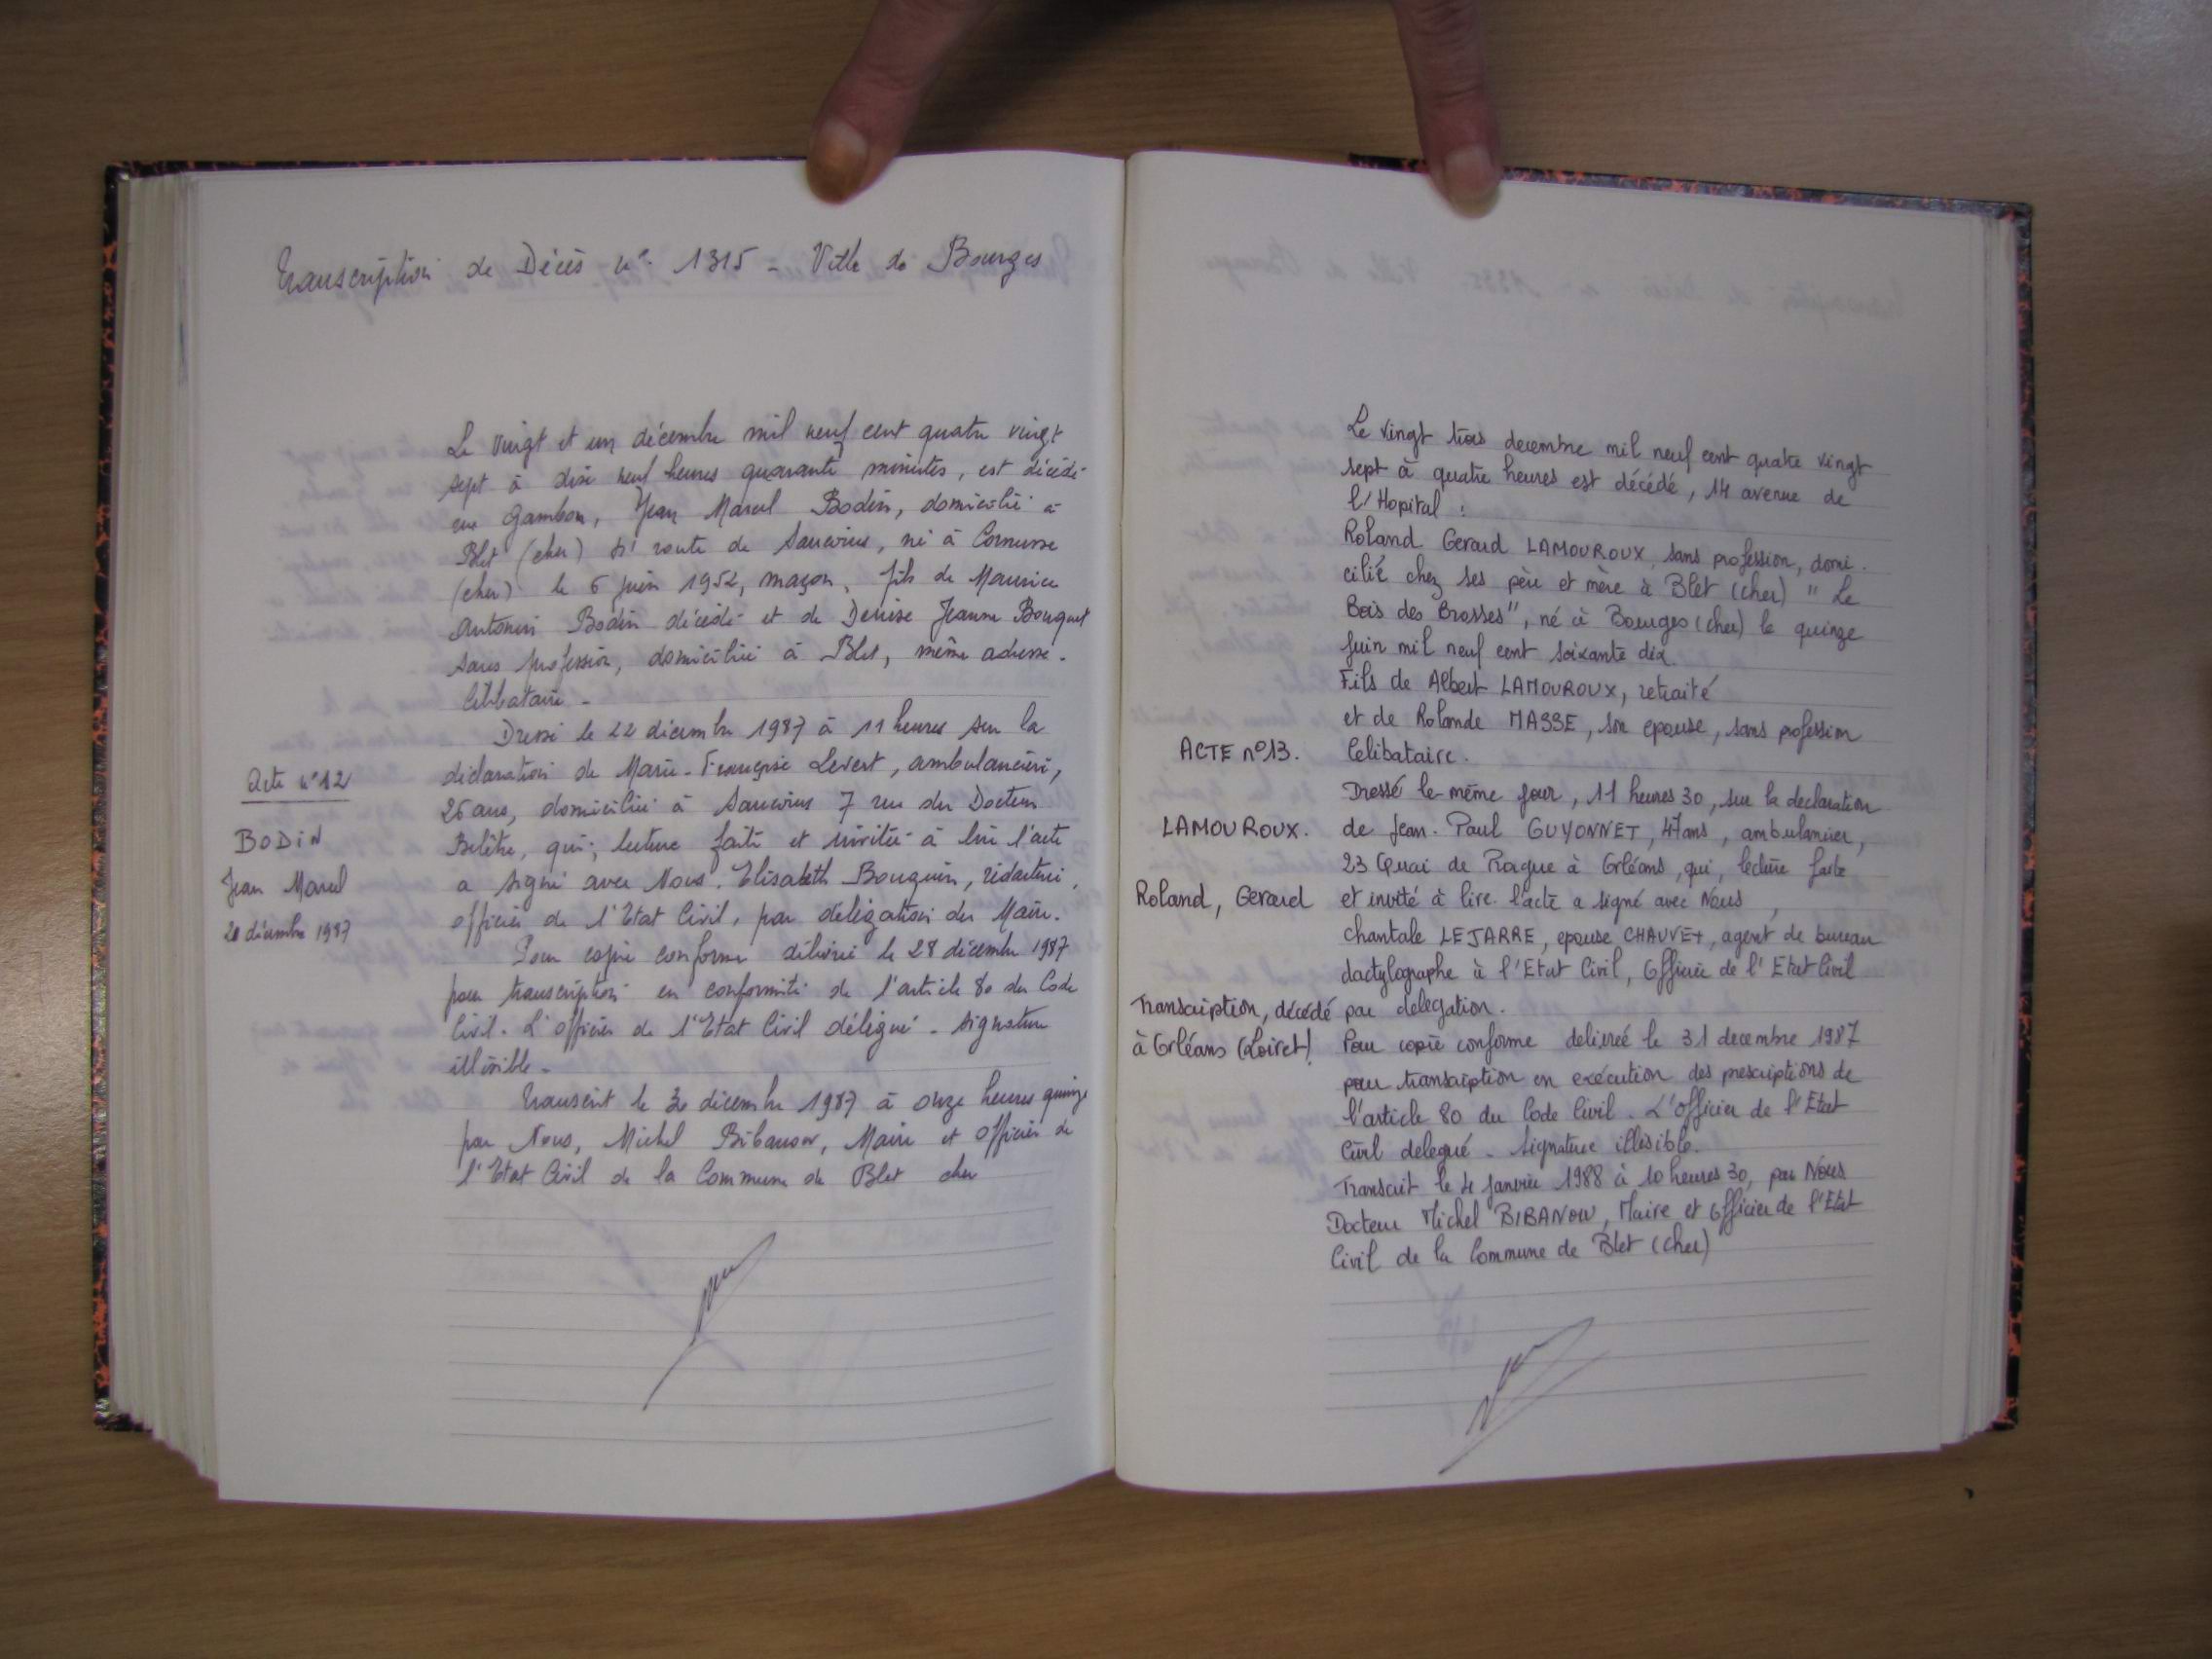 Transcription de Décès n° 1315 - Ville de Bourges
Le vingt et un décembre mil neuf cent quatre vingt
sept à dix neuf heures quarante minutes, est décédé
rue Gambon, Jean Marcel Bodin, domicilié à
Blet (cher) route de Sancoins, né à Cornusse
(cher) le 6 juin 1952, maçon, fils de Maurice
Antonin Bodin décédé et de Denise Jeanne Bouquet
sans profession, domiciliée à Blet, même adresse.
Célibataire -
Dressé le 22 décembre 1987 à 11 heures sur la
déclaration de Marie-Françoise Levert, ambulancière,
26 ans, domiciliée à Sancoins 7 rue du Docteur
qui, lecture faite et invitée à lire l'acte
a signé avec Nous. Elisabeth Bouquin, rédactrice,
officier de l'Etat Civil, par délégation du Maire.
Pour copie conforme délivrée le 28 décembre 1987
pour transcription en conformité de l'article 80 du Code
Civil. L'officier de l'Etat Civil délégué - signature
illisible -
Transcrit le 30 décembre 1987 à onze heures quinze
par Nous, Michel Bibanow, Maire et officier de
l'Etat Civil de la Commune de Blet cher
Acte n°12
BODIN
Jean Marcel
décembre 1987
Le vingt trois decembre mil neuf cent quatre vingt
sept à quatre heures est décédé, 14 avenue de
l'Hopital :
Roland Gerard LAMOUROUX, sans profession, domi-
cilié chez ses père et mère à Blet (cher) " Le
Bois des Brosses", né à Bourges (cher) le quinze
Juin mil neuf cent soixante dix
Fils de Albert LAMOUROUX, retraité
et de Rolande MASSE, son epouse, sans profession
Celibataire.
Dressé le même jour, 11 heures 30, sur la declaration
de Jean-Paul GUYONNET, 47 ans, ambulancier,
23 Quai de Prague à Orléans, qui, lecture faite
et invité à lire l'acte a signé avec Nous,
chantale LEJARRE, epouse CHAUVET, agent de bureau
dactylographe à l'Etat Civil, Officier de l'Etat Civil
par delegation.
Pour copie conforme delivrée le 31 decembre 1987
pour transcription en exécution des prescriptions de
l'article 80 du Code Civil. L'officier de l'Etat
Civil delegué - signature illisible.
Transcrit le 4 Janvier 1988 à 10 heures 30, par Nous
Docteur Michel BIBANOW, Maire et Officier de l'Etat
Civil de la Commune de Blet (cher)
ACTE n°13.
LAMOUROUX.
Roland, Gerard
Transcription, décédé
à Orléans (Loiret)